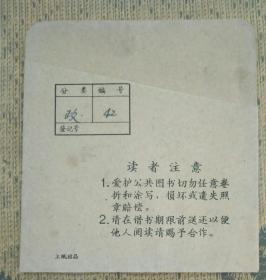 分类 编号
政. 42
登记号
读者注意
1. 爱护公共图书切勿任意卷
折和涂写，损坏或遗失照
章赔偿。
2. 请在借书期限前送还以便
他人阅读请赐予合作。
上纸出品